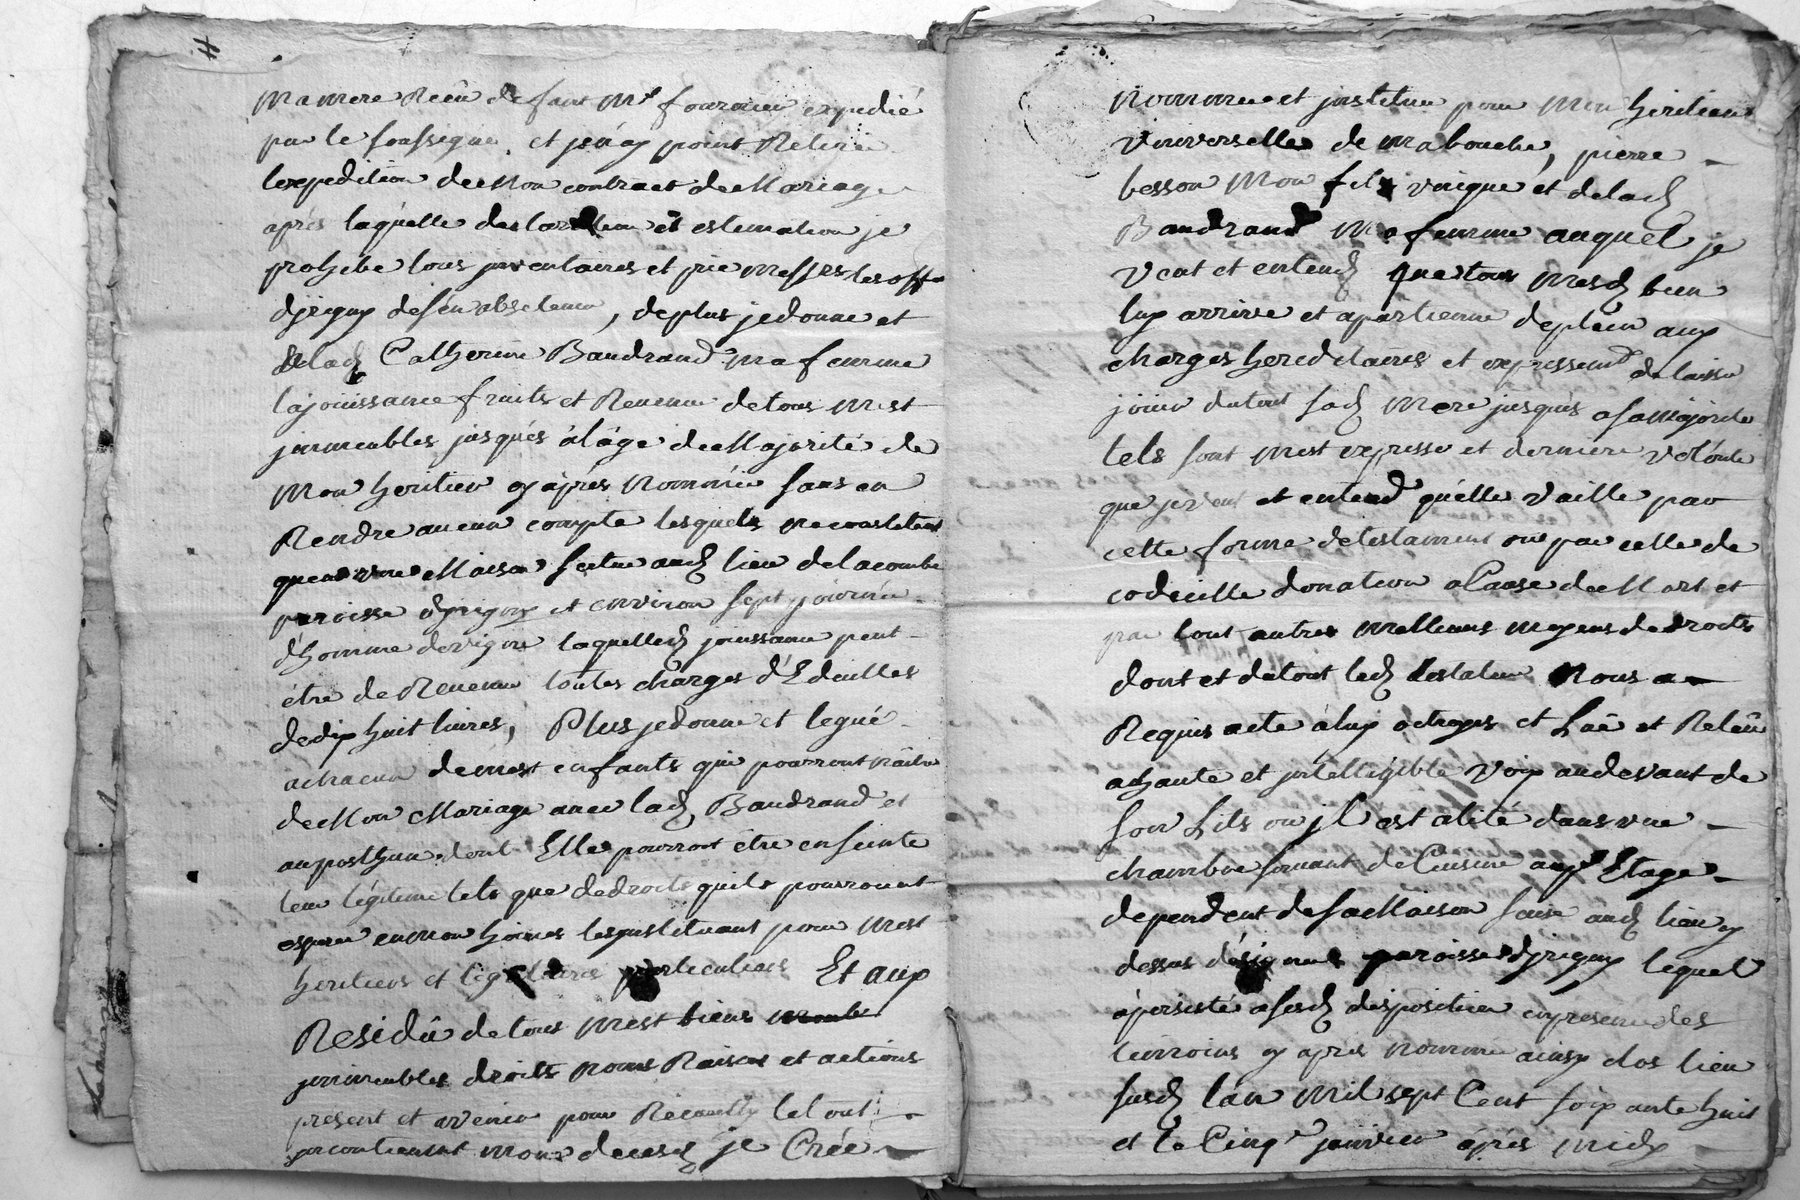 ma mere Reçu de faut Mr fournier expedié
par le soussigné, et je n'ay point Retiré
lexpedition de Mon contract de Mariage
après laquelle declaration et estimation je
prohibe tous inventaires et prie messrs les off
d'jrigny desen abstenir, deplus je donne et
delad Catherine Baudrand ma femme
la joüissance fruits et Revenu de tous mest
jmmeubles jusqués à l'age de Majorité de
Mon heritier cy après Nommé sans en
Rendre aucun compte lesquels ne consistent
quen une Maison scitue aud lieu de la combe
paroisse djrigny et environ sept journée
d'homme de vigne laquelled jouissance peut
être de Revenu toutes charges d'Edeuittes
de dix huit livres, Plus je donne et legue
a chacun de mest enfants qui pourront nâitre
de Mon Mariage avec lad Baudrand et
au posthume dont Elle pourroit être enceinte
leur légitime tels que de droits quils pourront
esperer en mon hoirie les jnstituant pour mest
heritiers et légataires particuliers Et aux
Residû de tous mest biens meubles
jmmeubles droits noms Raisons et actions
present et avenir pour Recueillir le tout
jncontienent mon deceds je Crée
Nomme et jnstitue pour mon heritier
universelle de ma bouche, pierre
besson Mon fils unique et delad
Baudrand Ma femme auquel je
veut et entend que tous mesd bien
luy arrive et apartienne deplein aux
charges hereditaires et expressemt de laisser
joüir du tout sad mere jusqués a sa majorité
tels sont mest expresse et derniere volonté
que je veut et entend qu'elle vaille par
cette forme de testament ou par celle de
codicille donation a Cause de Mort et
par tout autres meilleurs moyens de droits
dont et du tout led testateur Nous a
Requis acte à luy octroyés et Lû et Relû
a haute et jntelligible voix au devant de
son Lits ou jl est alité dans une
chambre servant de Cuisine au 1r Etage
dependent de sa Maison scise aud lieu cy
dessus désignés paroisse djrigny lequel
à persisté a sesd disposition en presence des
temoins cy apres nommé ainsy clos lieu
susd lan mil sept Cent soixante huit
et le Cinqe janvier après midy